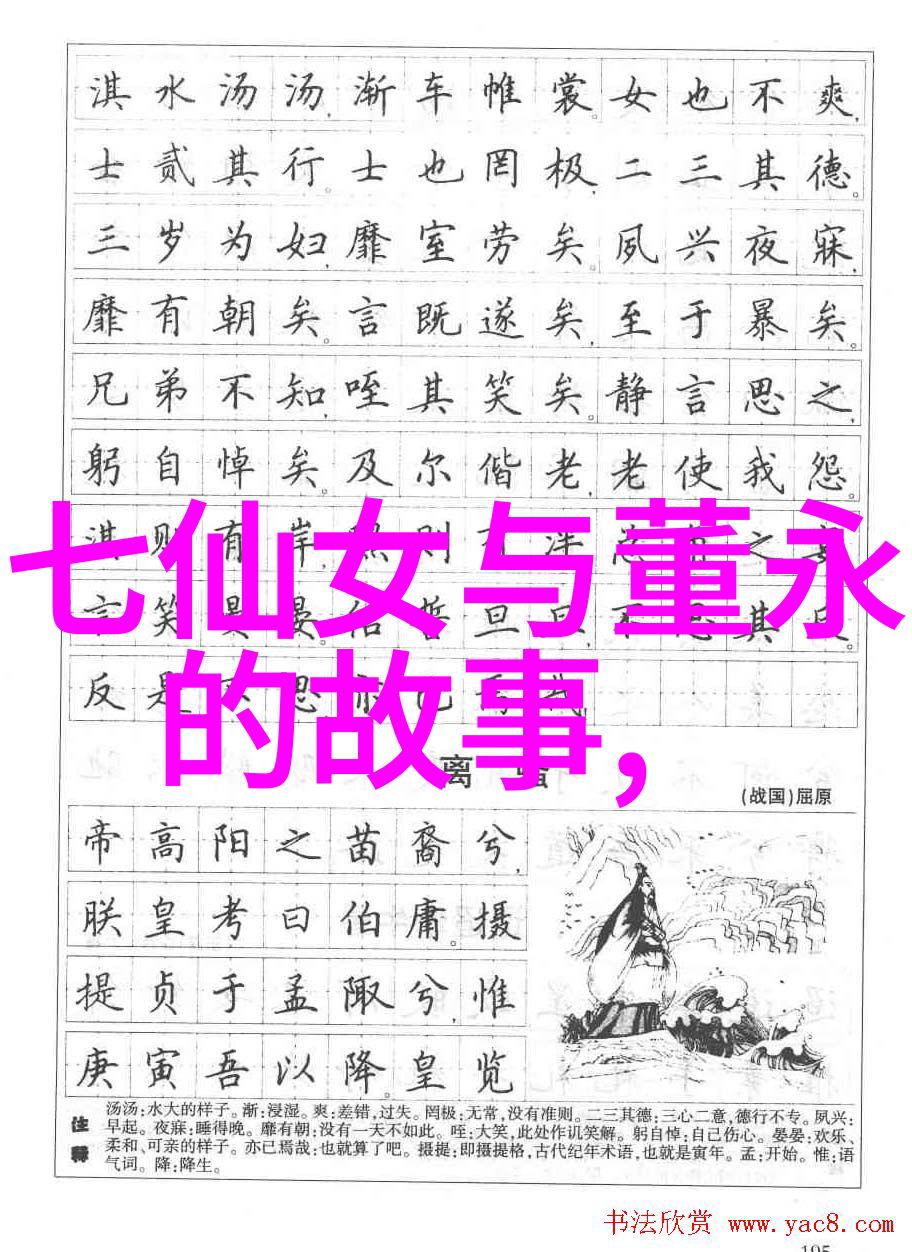 淇水汤汤,渐车帷裳。女也不爽,
士贰其行。士也罔极,二三其德。
三岁为妇,靡室劳矣。夙兴夜寐,
靡有朝矣。言既遂矣,至于暴矣。
兄弟不知,咥其笑矣。静言思之,
躬自悼矣。及尔偕老,老使我怨。
淇则有岸,则之
言笑旦其
反是思
七仙女与董永
的故事,
离
(战国)屈原
帝高阳之苗裔兮,
朕皇考曰伯庸。摄
提贞于孟陬兮,惟
庚寅吾以降。皇览
注释
汤汤:水大的样子。渐:浸湿。爽:差错,过失。罔极:无常,没有准则。二三其德:三心二意,德行不专。夙兴:
早起。夜寐:睡得晚。靡有朝:没有一天不如此。咥:大笑,此处作讥笑解。躬自悼:自己伤心。晏晏:欢乐、
柔和、可亲的样子。亦已焉哉:也就算了吧。摄提:即摄提格,古代纪年术语,也就是寅年。孟:开始。惟:语
气词。降:降生。
书法欣赏 www.yac8.com
105